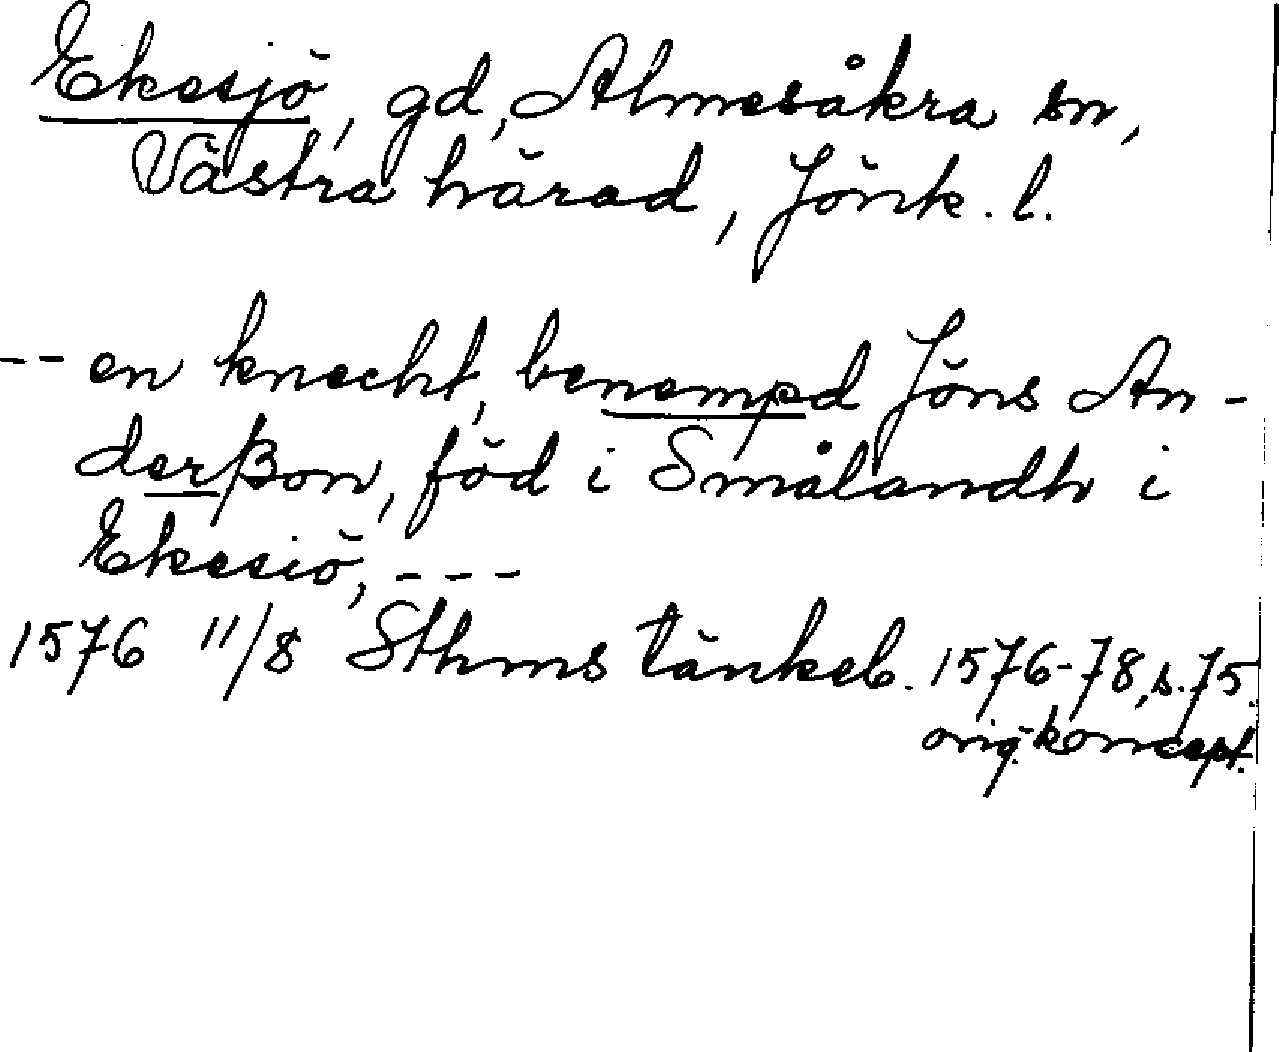 Ekesjö, gd, Almesåkra sn,
Västra härad, Jönk. l.
-- en knecht, benempd Jöns An-
derßon, föd i Smålandh i
Ekesiö, ---
1576 11/8 Sthms tänkeb. 1576-78, s. 75.
orig.koncept.